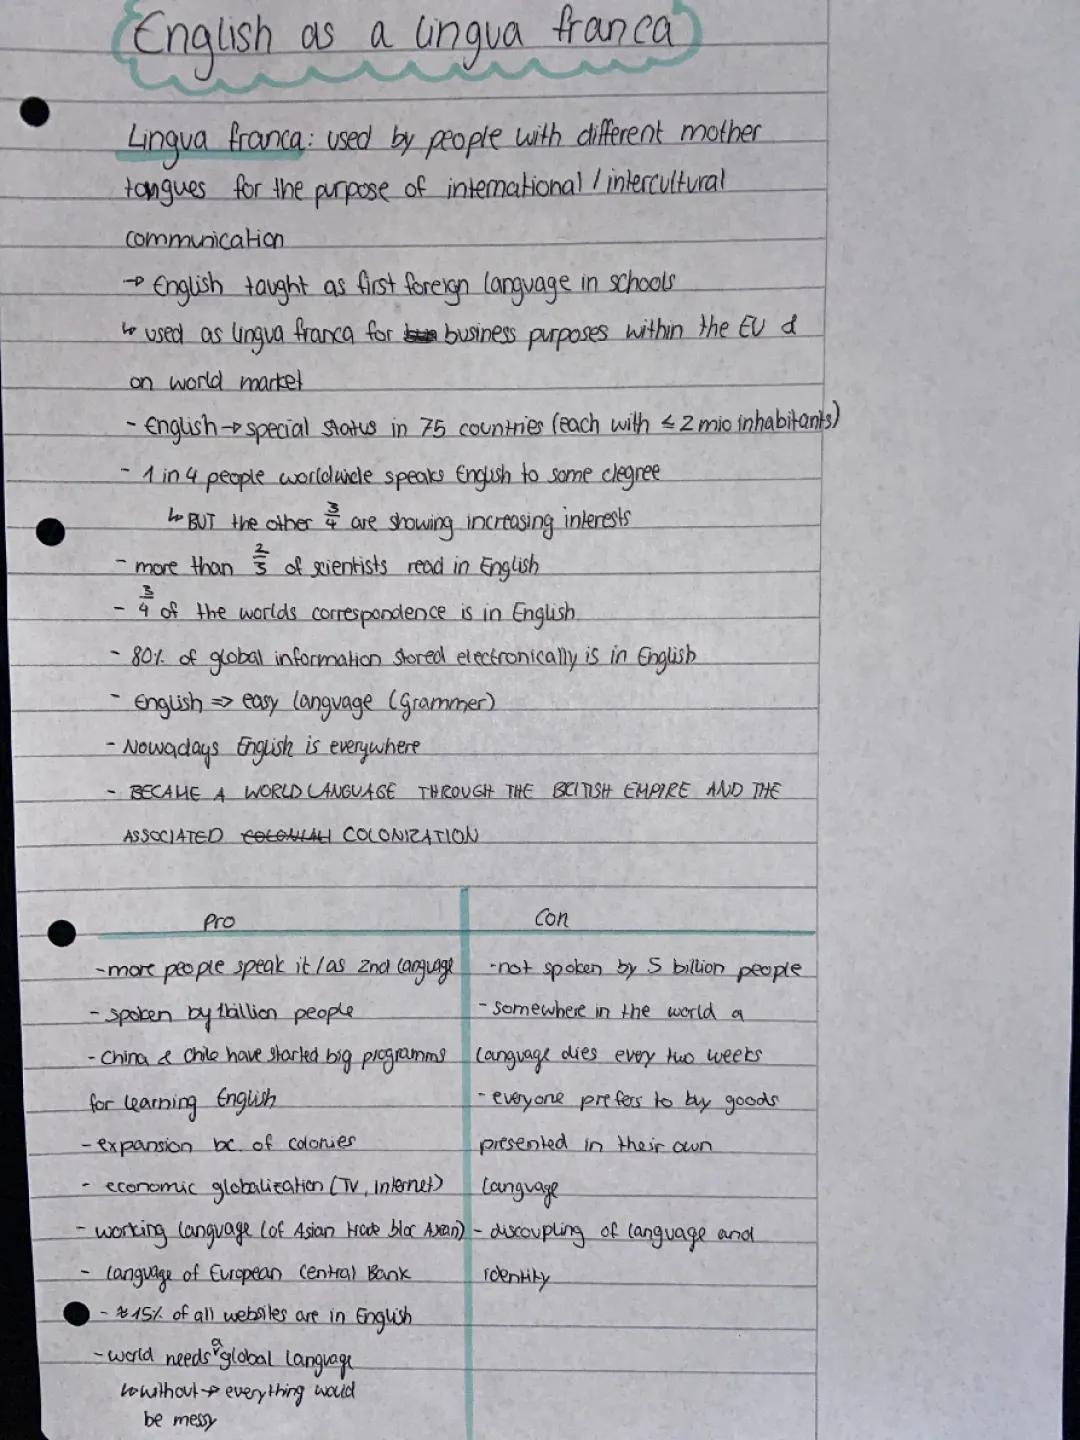 English as a lingua franca
Lingua franca: used by people with different mother
tongues for the purpose of international / intercultural
communication
→ English taught as first foreign language in schools
↳ used as lingua franca for business purposes within the EU &
on world market
- English → special status in 75 countries (each with ≤ 2 mio inhabitants)
- 1 in 4 people worldwide speaks English to some degree
↳ BUT the other 3/4 are showing increasing interests
- more than 2/3 of scientists read in English
- 3/4 of the worlds correspondence is in English
- 80% of global information stored electronically is in English
- English ⇒ easy language (Grammer)
- Nowadays English is everywhere
- BECAME A WORLD LANGUAGE THROUGH THE BRITISH EMPIRE AND THE
ASSOCIATED COLONIZATION
Pro
- more people speak it / as 2nd language
- spoken by 1 billion people
- China & Chile have started big programms
for learning English
- expansion bc. of colonies
- economic globalization (TV, Internet)
- working language (of Asian trade bloc Asean)
- language of European Central Bank
- ≈ 45% of all websites are in English
- world needs a global language
↳ without → everything would
be messy
Con
- not spoken by 5 billion people
- somewhere in the world a
language dies every two weeks
- everyone prefers to buy goods
presented in their own
language
- discoupling of language and
identity